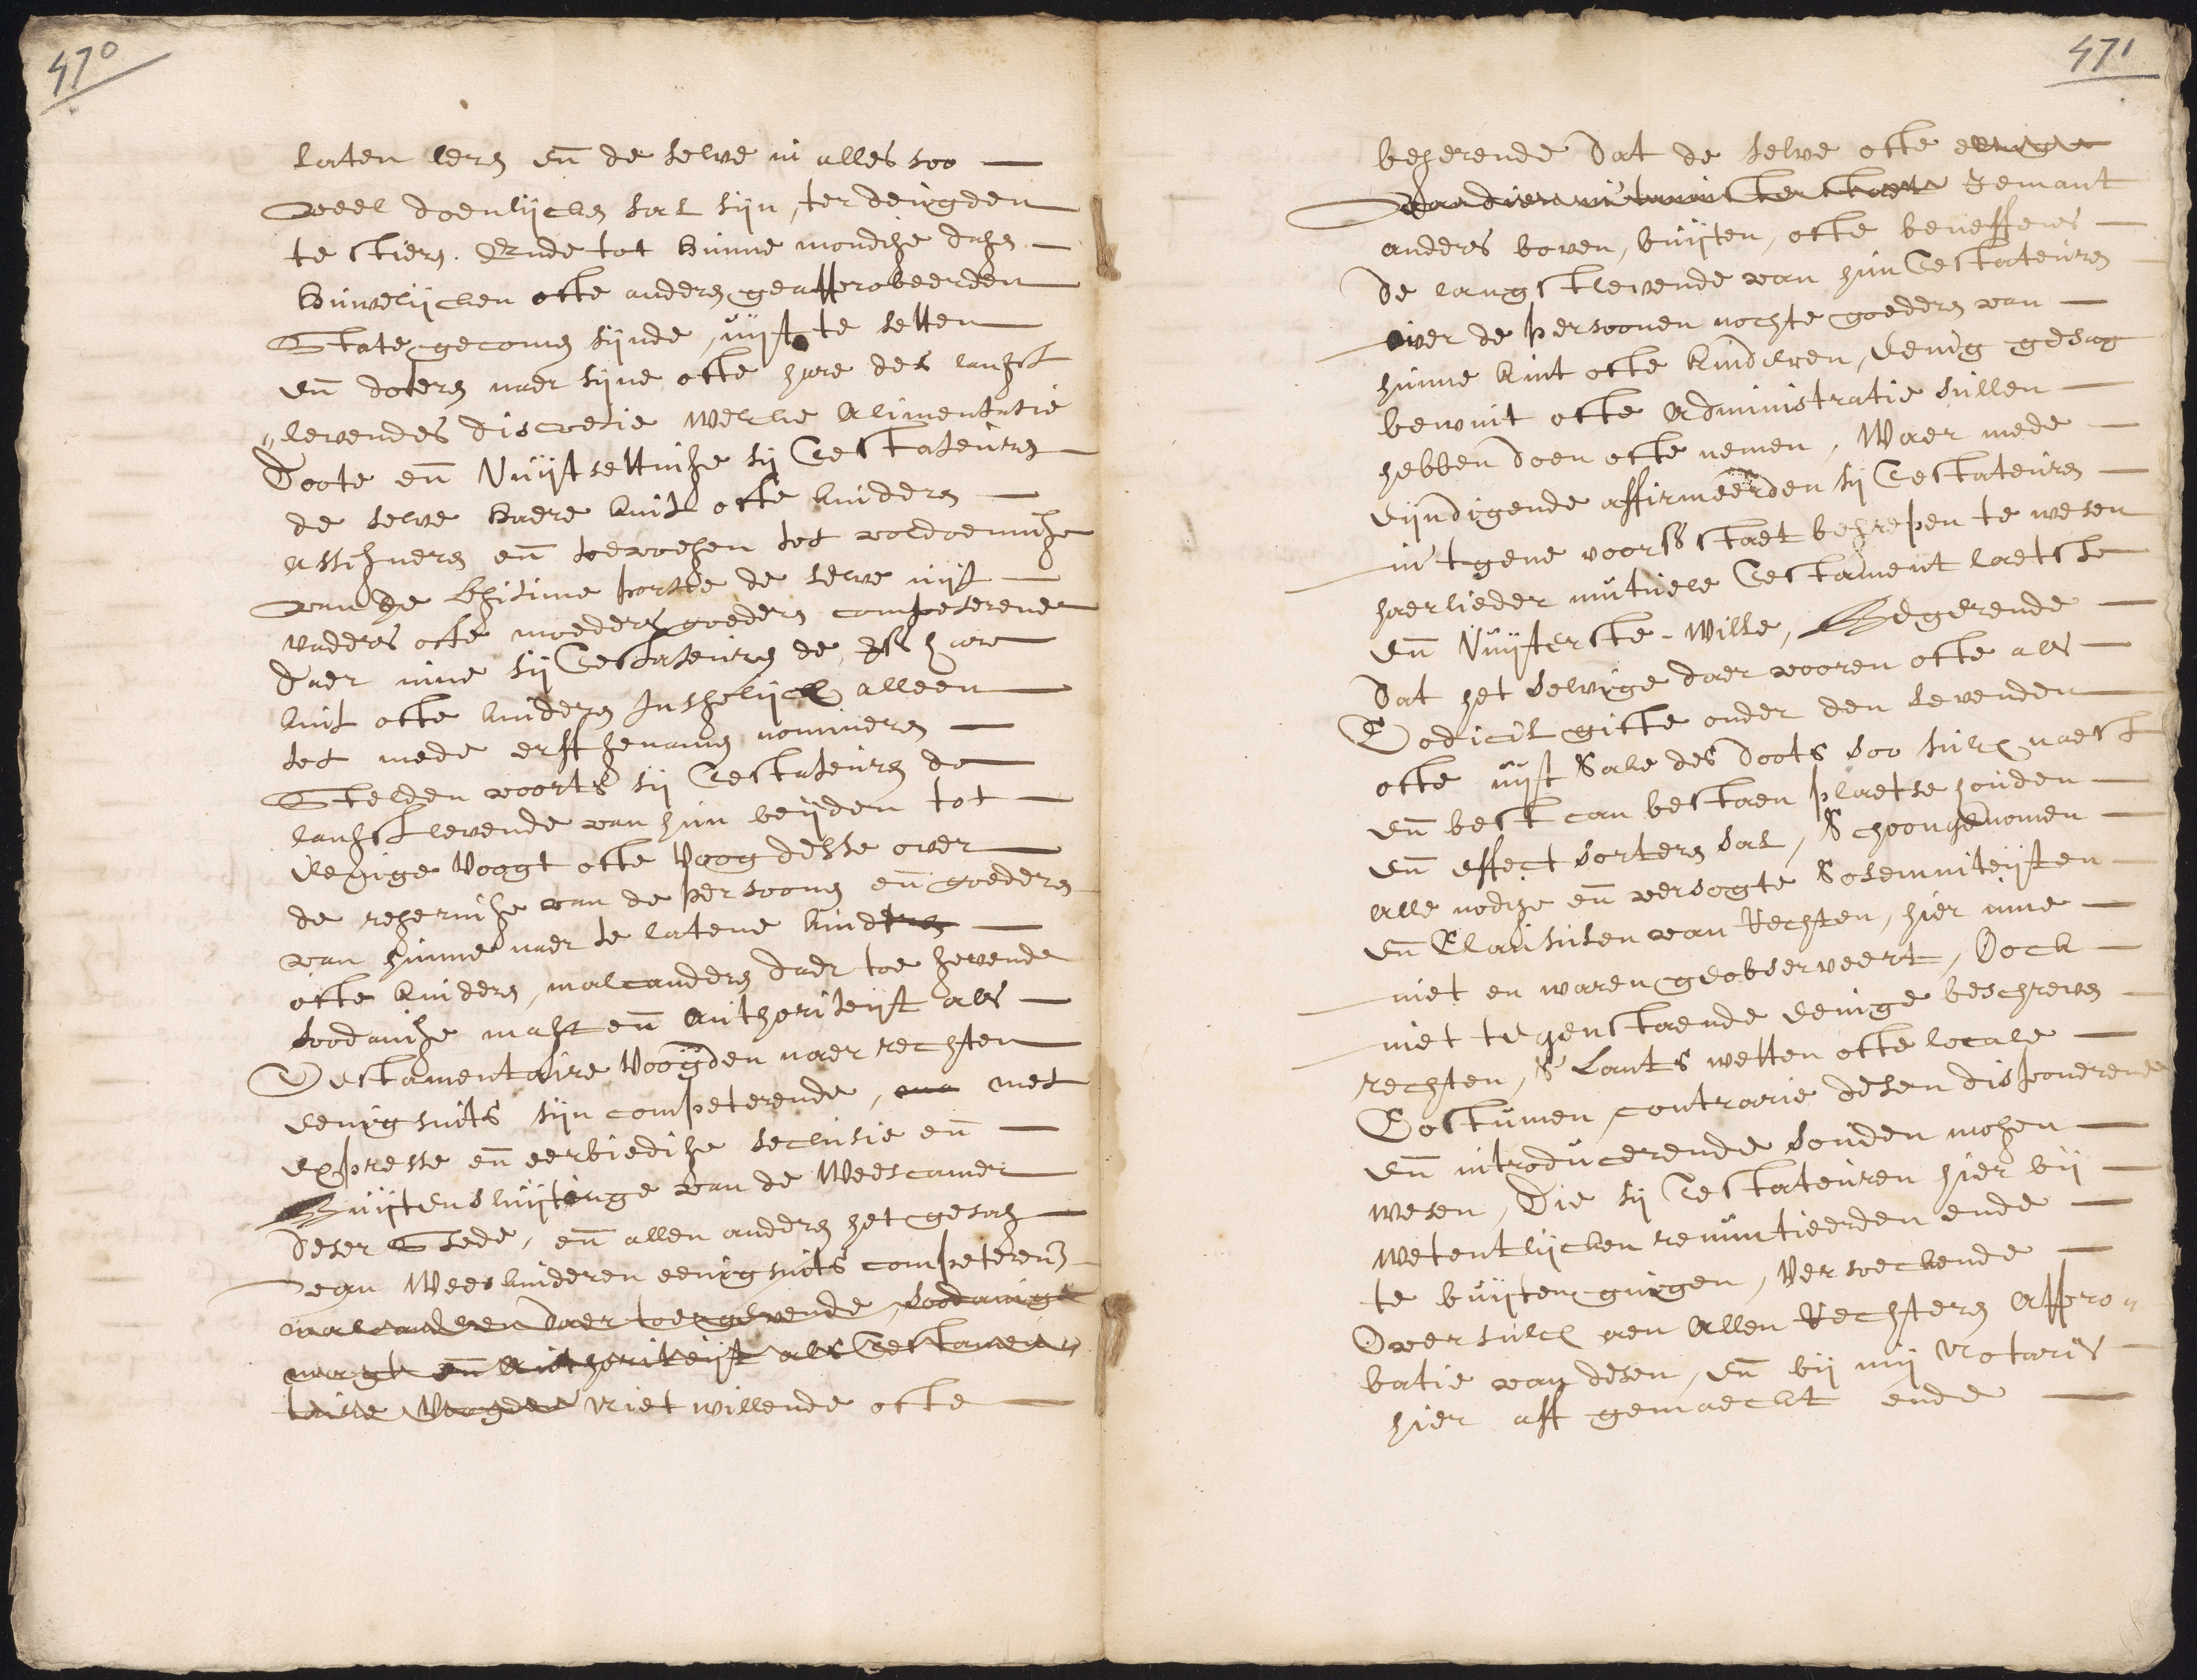 470
laten leren en de selve in alles soo
veel doenlijcken sal sijn, ter deugden
te stieren. Ende tot hunne mondige dagen
huwelijcken ofte anderen geapprobeerden
State gecomen sijnde, uijt te setten
en doteren naer sijne ofte hare des langst
levendes discretie welcke Alimentatie
Doote en Vuijtsettinge sij Testateuren
de selve haere kint ofte kinderen
assigneren en toevoegen tot voldoeninge
van de legitime portie de selve uijt
vaders ofte moeders goederen competerende
daer inne sij Testateuren de hare
kint ofte kinderen Insgelijcx alleen
tot mede erffgenamen nomineren
Stelden voorts sij Testateuren de
langstlevende van hun beijden tot
eenige Voogt ofte Voogdesse over
de regeringe van de persoonen en goederen
van hunne naer te latene kinderen
ofte kinderen, malcanderen daer toe gevende
soodanige macht en Authoriteijt als
Testamentaire Voogden naer rechten
eenigsints sijn competerende, met
expresse en eerbiedige seclusie en
Buijtensluijtinge van de Weescamer
deser Stede, en allen anderen het gesach
van Weeskinderen eenigsints competeren
malcanderen daer toe gevende, soodanige
macgt en Authoriteijt als Testamen
taire Voogden Niet willende ofte
471
begerende dat de selve ofte eenige
Jemant
anders boven, buijten, ofte beneffens
de langstlevende van hun Testateuren
over de persoonen nochte goederen van
hunne kint ofte kinderen, eenig gesag
bewint ofte Administratie sullen
hebben doen ofte nemen, Waer mede
eijndigende affirmeerden sij Testateuren
in 't gene voorss staet begrepen te wesen
haerlieder mutuele Testament laetste
en Vuijterste Wille, Begerende
dat het selvige daer vooren ofte als
Codicil gifte onder den levenden
ofte uijt Sake des doots soo sulcx naest
en best can bestaen plaetse houden
en effect sorteren sal, Schoongenomen
alle nodige en versogte Solemniteijten
en Clausulen van Rechten, hier inne
niet en waren geobserveert, Oock
niet tegenstaende eenige beschreven
rechten, S' Lants wetten ofte locale
Costumen contrarie desen disponerende
en introducerende souden mogen
wesen, Die sij Testateuren hier bij
wetentlijcken renuntieerden ende
te buijten gingen, Versoeckende
Oversulcx aen Allen Rechteren Appro
batie van desen, en bij mij Notaris
hier aff gemaeckt ende